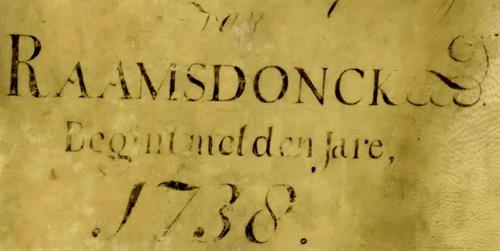 van
RAAMSDONCK &c.
Begint met den Jare,
1738.